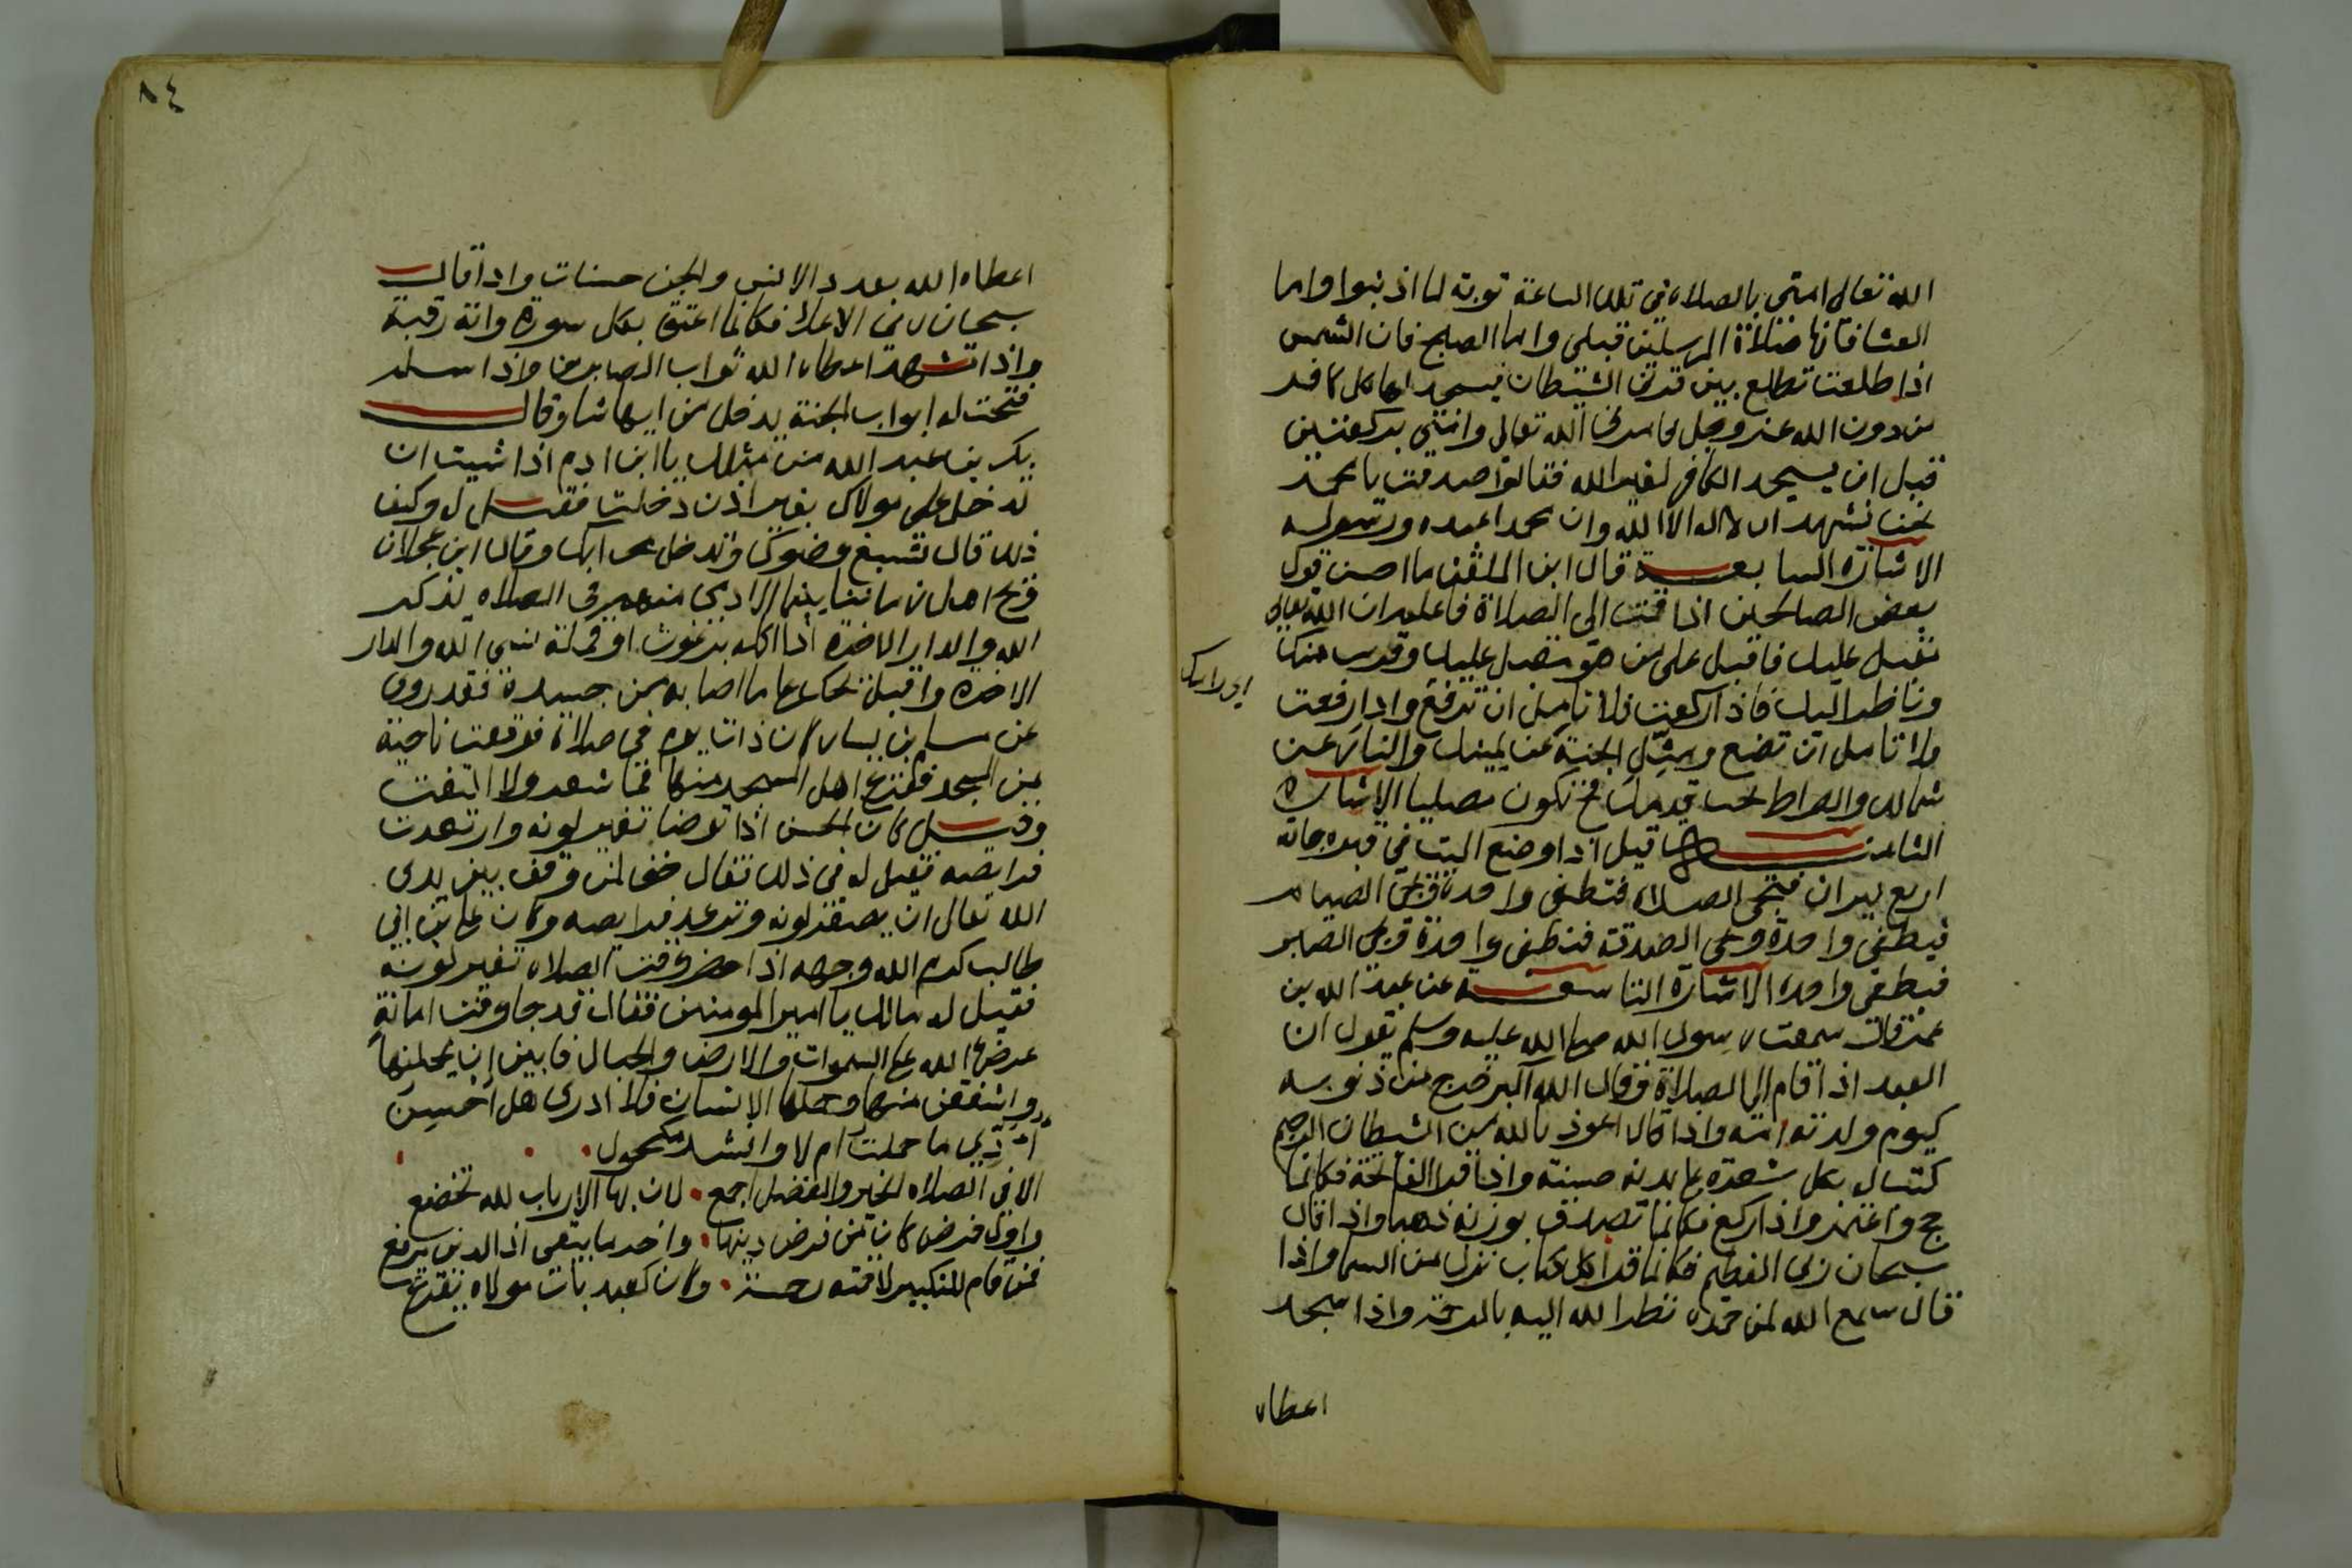 الله تعالى امتي بالصلاة في تلك الساعة توبة لما اذنبوا واما
العشا فانها صلاة المرسلين قبلي واما الصبح فان الشمس
اذا طلعت تطلع بين قرني الشيطان فيسجد لها كل كافر
من دون الله عز وجل فامرني الله تعالى وامتي بركعتين
قبل ان يسجد الكافر لغير الله فقالوا صدقت يا محمد
نحن نشهد ان لا اله الا الله وان محمدا عبده ورسوله
الاشارة السابعة قال ابن الملقن ما احسن قول
بعض الصالحين اذا قمت الى الصلاة فاعلم ان الله تعالى
مقبل عليك فاقبل على من هو مقبل عليك وقريب منك
وناظر اليك فاذا ركعت فلا تامل ان ترفع واذا رفعت
ولا تامل ان تضع ومثل الجنة عن يمينك والنار عن
شمالك والصراط تحت قدميك فح تكون مصليا الاشارة
الثامنة قيل اذا وضع الميت في قبره جاته
اربع نيران فتجي الصلاة فتطفى واحدة وتجي الصيام
فيطفى واحدة وتجي الصدقة فتطفى واحدة وتجي الصبر
فيطفى واحده الاشارة التاسعة عن عبد الله بن
عمر قال سمعت رسول الله صلى الله عليه وسلم يقول ان
العبد اذا قام الى الصلاة فقال الله اكبر خرج من ذنوبه
كيوم ولدته امه واذا قال اعوذ بالله من الشيطان الرجيم
كتب له بكل شعرة على بدنه حسنة واذا قرا الفاتحة فكانما
حج واعتمر واذا ركع فكانما تصدق بوزنه ذهبا واذا قال
سبحان ربي العظيم فكانما قرا كل كتاب نزل من السما واذا
قال سمع الله لمن حمده نظر الله اليه بالرحمة واذا سجد
اعطاه
٨٤
اعطاه الله بعدد الانس والجن حسنات واذا قال
سبحان ربي الاعلى فكانما اعتق بكل سورة واية رقبة
واذا تشهد اعطاه الله ثواب الصابرين واذا سلم
فتحت له ابواب الجنة يدخل من ايها شا وقال
بكر بن عبد الله من مثلك يا ابن ادم اذا شيت ان
تدخل على مولاك بغير اذن دخلت فقيل له وكيف
ذلك قال تسبغ وضوك وتدخل محرابك وقال ابن عجلان
ويح اهل زماننا بينما الادمي منهم في الصلاه يذكر
الله والدار الاخرة اذا اكله برغوث او قملة نسي الله والدار
الاخرة واقبل يحك على ما اصابه من جسده فقد روي
عن مسلم بن يسار كان ذات يوم في صلاة فوقعت ناحية
من المسجد ففزع اهل المسجد منها فما شعر ولا التفت
وقيل كان الحسن اذا توضا تغير لونه وارتعدت
فرايصه فقيل له في ذلك فقال حق لمن وقف بين يدي
الله تعالى ان يصفر لونه وترعد فرايصه وكان علي بن ابي
طالب كرم الله وجهه اذا حضر وقت الصلاه تغير لونه
فقيل له مالك يا امير المومنين فقال قد جا وقت امانة
عرضها الله على السموات والارض والجبال فابين ان يحملنها
واشفقن منها وحملها الانسان فلا ادري هل احسن
ما حملت ام لا وانشد مكحول
الا في الصلاه الخير والفضل اجمع لان بها الارباب لله تخضع
واول فرض كان من فرض دينها واخر ما يبقى اذا الدين يرفع
فمن قام للتكبير لاقته رحمة وكان كعبد باب مولاه يقرع